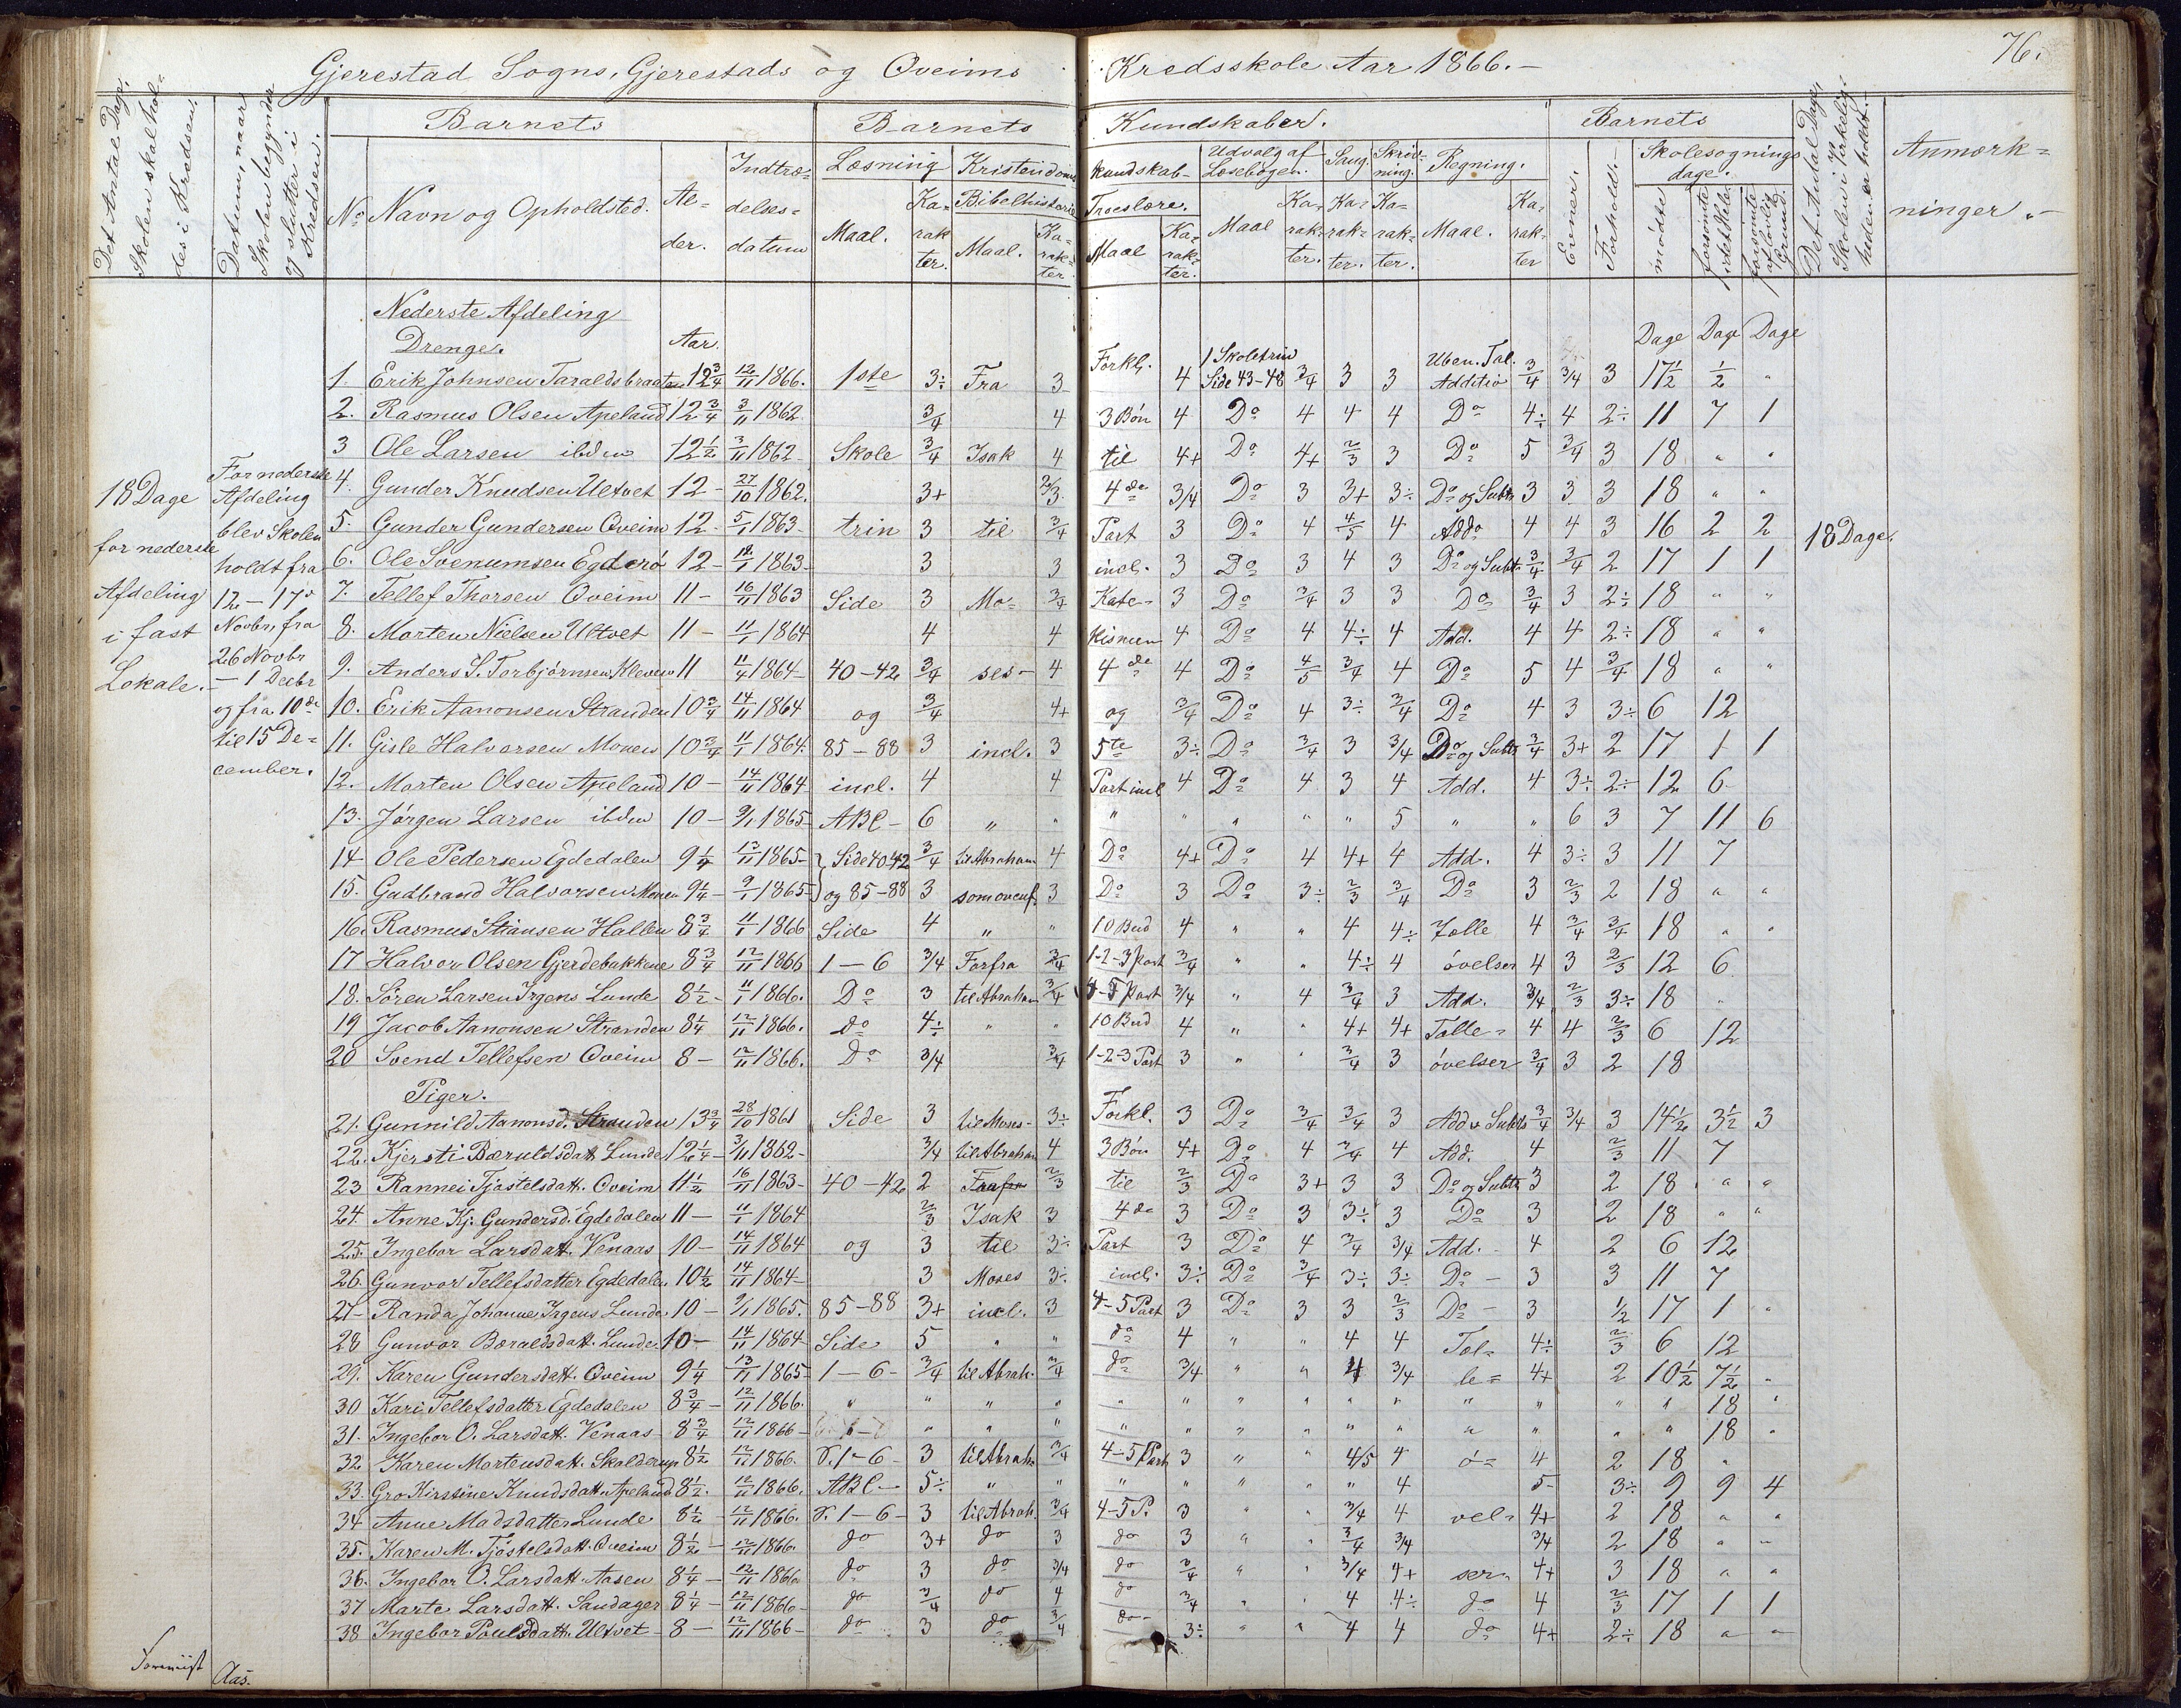 76.
Gjerestad Sogns, Gjerestads og Oveims Kredsskole Aar 1866.-
Det Antal Dage, Skolen skal holdes i Kredsen.
Datum, naar Skolen begynder og slutter i Kredsen.
Barnets Barnets Kundskaber. Barnets
No Navn og Opholdsted. Alder. Indtrædelsesdatum
Læsning Maal. Karakter.
Kristendomskundskab Bibelhistorie Maal. Karakter Troeslære. Maal Karakter.
Udvalg af Læsebogen. Maal Karakter.
Sang. Karakter. Skrivning. Karakter. Regning. Maal. Karakter
Evner. Forhold.
Skolesøgningsdage. mødte forsømte i det Hele forsømte af lovlig Grund.
Det Antal Dage, Skolen i Virkeligheden er holdt.
Anmærkninger.-
18 Dage for nederste Afdeling i fast Lokale.
For nederste Afdeling blev Skolen holdt fra 12 - 17de Novbr, fra 26 Novbr - 1 Decbr og fra 10de til 15 December.
18 Dage.
Nederste Afdeling
Drenge. Aar. Dage Dage Dage
1. Erik Johnsen Taraldsbraaten 12 3/4 12/11 1866. 1ste 3÷ Fra 3 Forkl. 4 1 Skoletrin Side 43-48 3/4 3 3 Uben. Tal. Additio 3/4 3/4 3 17 1/2 1/2 "
2. Rasmus Olsen Apeland 12 3/4 3/11 1862. 3/4 4 3 Bøn 4 Do 4 4 4 Do 4÷ 4 2÷ 11 7 1
3 Ole Larsen ibdm 12 1/2 3/11 1862- Skole 3/4 Isak 4 til 4+ Do 4+ 2/3 3 Do 5 3/4 3 18 " "
4. Gunder Knudsen Ultvet 12 - 27/10 1862. 3+ 2/3 4de 3/4 Do 3 3+ 3÷ Do og Subtr 3 3 3 18 " "
5. Gunder Gundersen Oveim 12 - 5/1 1863- trin 3 til 3/4 Part 3 Do 4 4/5 4 Addo 4 4 3 16 2 2
6. Ole Svenumsen Egderø 12 - 1863- 3 3 incl. 3 Do 3 4 3 Do og Subt. 3/4 3/4 2 17 1 1
7. Tellef Thorsen Oveim 11 - 16/11 1863 Side 3 Mo- 3/4 Kate- 3 Do 3/4 3 3 Do 3/4 3 2÷ 18 " "
8. Morten Nielsen Ultvet 11 - 11/1 1864 4 4 kismen 4 Do 4 4÷ 4 Add. 4 4 2÷ 18 " "
9. Anders S. Torbjørnsen Kleven 11 11/4 1864- 40-42 3/4 ses- 4 4de 4 Do 4/5 3/4 4 Do 5 4 3/4 18 " "
10. Erik Aanonsen Stranden 10 3/4 14/11 1864 og 3/4 4+ og 3/4 Do 4 3÷ 3/4 Do 4 3 3÷ 6 12
11. Gisle Halvorsen Monen 10 3/4 11/1 1864. 85-88 3 incl. 3 5te 3÷ Do 3/4 3 3/4 Do og Subtr 3/4 3+ 2 17 1 1
12. Morten Olsen Apeland 10 - 14/11 1864 incl. 4 4 Part incl 4 Do 4 3 4 Add. 4 3÷ 2÷ 12 6
13. Jørgen Larsen ibdm 10 - 9/1 1865- ABC- 6 " " " " " " " 5 " " 6 3 7 11 6
14 Ole Pedersen Egdedalen 9 1/4 13/11 1865- Side 40.42 3/4 til Abraham 4 Do 4+ Do 4 4+ 4 Add. 4 3÷ 3 11 7
15. Gudbrand Halvorsen Monen 9 1/4 - 9/1 1865 og 85-88 3 som ovenf. 3 Do 3 Do 3÷ 2/3 3/4 Do 3 2/3 2 18 " "
16. Rasmus Stiansen Hallen 8 3/4 11/1 1866 Side 4 " " 10 Bud 4 " " 4 4÷ Talle 4 3/4 3/4 18 " "
17 Halvor Olsen Gjerdebakkene 8 3/4 12/11 1866 1-6 3/4 Forfra 3/4 1-2-3 Part 3/4 " " 4÷ 4 øvelser 4 3 2/3 12 6
18. Søren Larsen Irgens Lunde 8 1/2 - 11/1 1866. Do 3 til Abraham 3/4 4-5 Part 3/4 " 4 3/4 3 Add. 3/4 2/3 3÷ 18 "
19 Jacob Aanonsen Stranden 8 1/4 12/11 1866. do 4÷ " " 10 Bud 4 " " 4+ 4+ Talle- 4 4 2/3 6 12
20 Svend Tellefsen Oveim 8 - 12/11 1866. Do 3/4 3/4 1-2-3 Part 3 " " 3/4 3 øvelser 3/4 3 2 18
Piger.
21. Gunnild Aanonsd. Stranden 13 3/4 28/10 1861 Side 3 til Moses- 3÷ Forkl. 3 Do 3/4 3/4 3 Add & Subtr 3/4 3/4 3 14 1/2 3 1/2 3
22. Kjersti Bæruldsdatt. Lunde 12 1/4 - 3/11 1862- 3/4 til Abraham 4 3 Bøn 4+ Do 4 3/4 4 Add. 4 2/3 11 7
23 Rannei Tjøstelsdatt. Oveim 11 1/2 16/11 1863- 40-42 2 2/3 til 2/3 Do 3+ 3 3 Do og Subtr 3 2 18 " "
24. Anne Kj. Gundersd. Egdedalen 11 - 11/1 1864 2/3 Isak 3 4de 3 Do 3 3÷ 3 Do 3 2 18 " "
25. Ingebor Larsdatt. Venaas 10 - 14/11 1864 og 3 til 3÷ Part 3 Do 4 3/4 3/4 Add. - 4 2 6 12
26. Gunvor Tellefsdatter Egdedalen 10 1/2 14/11 1864- 3 Moses 3÷ incl. 3÷ Do 3/4 3÷ 3÷ Do - 3 3 11 7
27- Randa Johanne Irgens Lunde 10 - 9/1 1865. 85-88 3+ incl. 3 4-5 Part 3 Do 3 3 2/3 Do - 3 1/2 17 1 "
28 Gunvor Bæruldsdatt. Lunde 10 - 14/11 1864- Side 5 " " do 4 " " 4 4 Tal- 4÷ 2/3 6 12
29. Karen Gundersdatt. Oveim 9 1/4 13/11 1865- 1-6- 3/4 til Abrah. 3/4 do 3/4 " " 4 3/4 le= 4+ 2 10 1/2 7 1/2 "
30 Kari Tellefsdatter Egdedalen 8 3/4 - 12/11 1866. " " " " " " " " " " " " " " 18 "
31. Ingebor O. Larsdatt. Venaas- 8 3/4 - 12/11 1866- " " " " " " " " " " " " " 18 "
32. Karen Mortensdatt. Skolderup 8 1/2 12/11 1866. S. 1-6- 3 til Abrah. 3/4 4-5 Part 3 " " 4/5 4 ø= 4 2 18 "
33. Gro Kirstine Knudsdatt. Apeland 8 1/2. 12/11 1866. ABC- 5÷ " " " " " " " 4 5- 3÷ 9 9 4
34 Anne Madsdatter Lunde 8 1/2 - 12/11 1866. S. 1-6- 3 til Abrah. 3/4 4-5 P. 3 " " 3/4 4 vel- 4+ 2 18 " "
35. Karen M. Tjøstelsdatt. Oveim 8 1/2 - 12/11 1866. do 3+ do 3 do 3 " " 3/4 3/4 3/4 2 18 " "
36. Ingebor O. Larsdatt. Aasen 8 1/4 - 12/11 1866 do 3 do 3/4 do 3/4 " " 3/4 4+ ser- 4+ 3 18 " "
37 Marte Larsdatt. Sandager 8 1/4 - 12/11 1866- do 3/4 do 4 do 3/4 " " 4 4÷ do 4 2/3 17 1 1
38 Ingebor Poulsdatt. Ultvet 8 - 12/11 1866- do 3 do 3/4 do- 3÷ " " 4 4 do 4+ 2÷ 18 " "
Aas.